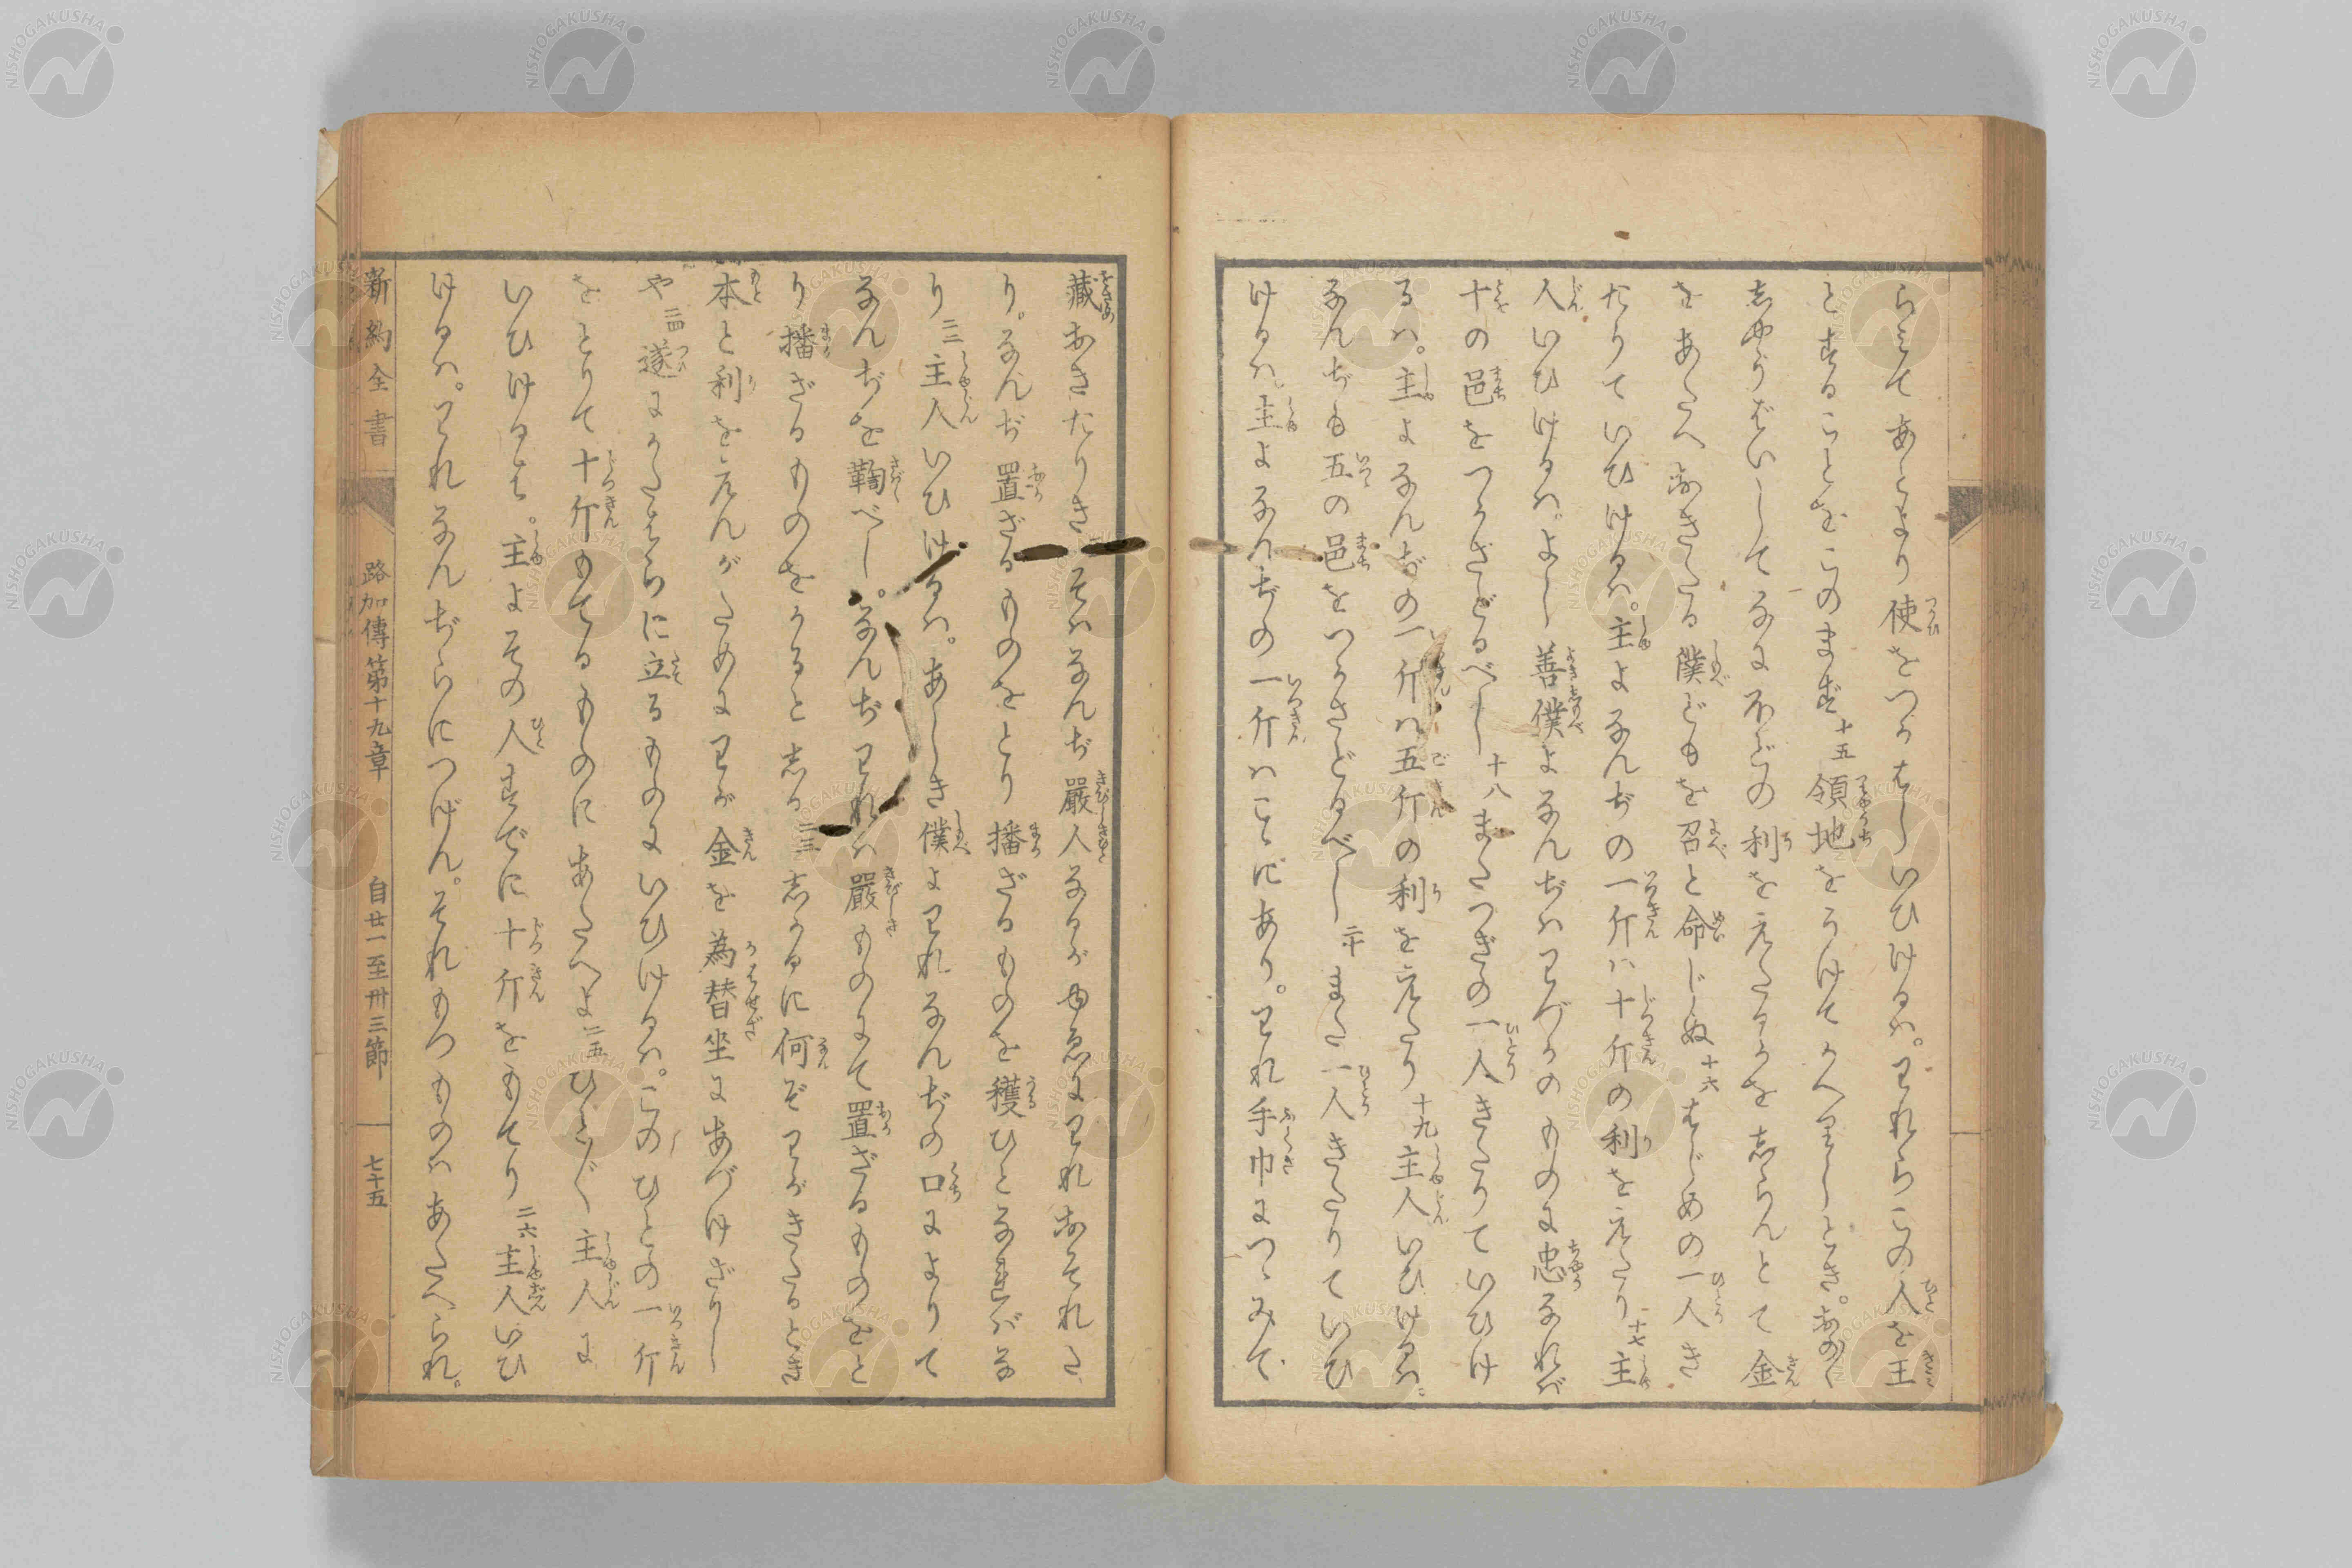 らミてあとより使をつかはしいひけるハ。わればらこの人を王
とすることをこのまず十五領地をうけてかへりしとき。おのく
志やうばいしてなにほどの利をえたるかを志らんとて金
をあたへおきたる僕どもを召と命じぬ十六はじめの一人き
たりていひけるハ。主よなんぢの一斤ハ十斤の利をえたり十七主
人いひけるハ。よし善僕よなんぢハわづかのものに忠なれバ
十の邑をつかさどるべし十八またつぎの一人きたりていひけ
るハ。主よなんぢの一斤ハ五斤の利をえたり十九主人いひけるハ。
なんぢも五の邑をつかさどるべし二十また一人きたりていひ
けるハ。主よなんぢの一斤ハこゝにあり。われ手巾につゝみて
藏おきたりき そハなんぢ嚴人なるがゆゑにわれおそれた
り。なんぢ置ざるものをとり播ざるものを穫ひとなれバな
り 主人いひけるハ。あしき僕よわれなんぢの口によりて
なんぢを鞫べし。なんぢわれハ嚴ものにて置ざるものをと
り播ざるものをかると志る二三志かるに何ぞわがきたるとき
本と利をえんがためにわが金を為替坐にあづけざりし
や二四遂にかたはらに立るものにいひけるハ。このひとの一斤
をとりて十斤もてるものにあたへよ二五ひとびと主人に
いひけるは。主よその人すでに十斤をもてり二六主人いひ
けるハ。われなんぢらにつげん。それもつものハあたへられ。
新約全書 路加傳第十九章 自廿一至卅三節 七十五